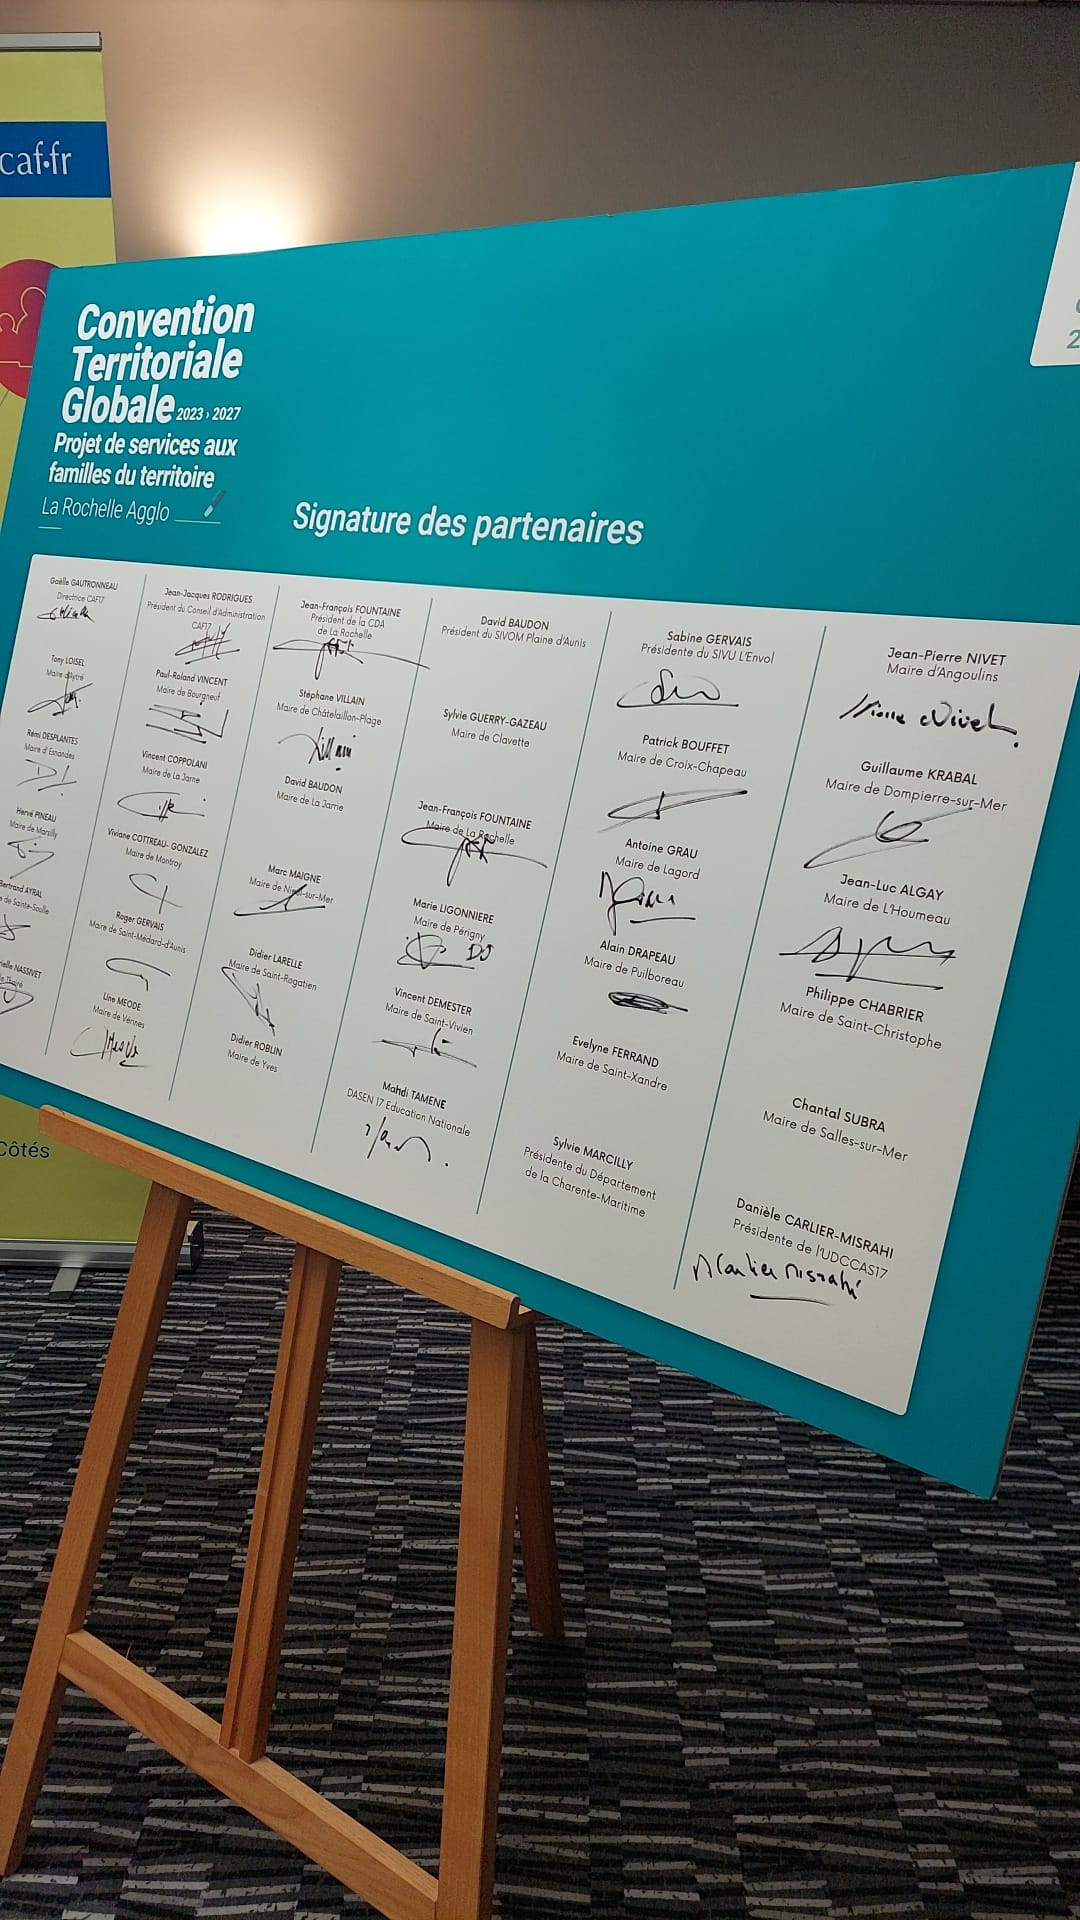 caf.fr
Convention
Territoriale
Globale 2023 › 2027
Projet de services aux
familles du territoire
La Rochelle Agglo
Signature des partenaires
Gaëlle GAUTRONNEAU
Directrice CAF17
Tony LOISEL
Maire d'Aytré
Rémi DESPLANTES
Maire d'Esnandes
Hervé PINEAU
Maire de Marsilly
Bertrand AYRAL
de Sainte-Soulle
NASSIVET
Jean-Jacques RODRIGUES
Président du Conseil d'Administration
CAF17
Paul-Roland VINCENT
Maire de Bourgneuf
Vincent COPPOLANI
Maire de La Jarne
Viviane COTTREAU- GONZALEZ
Maire de Montroy
Roger GERVAIS
Maire de Saint-Médard-d'Aunis
Line MEODE
Maire de Vérines
Jean-François FOUNTAINE
Président de la CDA
de La Rochelle
Stéphane VILLAIN
Maire de Châtelaillon-Plage
David BAUDON
Maire de La Jarrie
Marc MAIGNE
Maire de Nieul-sur-Mer
Didier LARELLE
Maire de Saint-Rogatien
Didier ROBLIN
Maire de Yves
David BAUDON
Président du SIVOM Plaine d'Aunis
Sylvie GUERRY-GAZEAU
Maire de Clavette
Jean-François FOUNTAINE
Maire de La Rochelle
Marie LIGONNIERE
Maire de Périgny
Vincent DEMESTER
Maire de Saint-Vivien
Mahdi TAMENE
DASEN 17 Education Nationale
Sabine GERVAIS
Présidente du SIVU L'Envol
Patrick BOUFFET
Maire de Croix-Chapeau
Antoine GRAU
Maire de Lagord
Alain DRAPEAU
Maire de Puilboreau
Evelyne FERRAND
Maire de Saint-Xandre
Sylvie MARCILLY
Présidente du Département
de la Charente-Maritime
Jean-Pierre NIVET
Maire d'Angoulins
Guillaume KRABAL
Maire de Dompierre-sur-Mer
Jean-Luc ALGAY
Maire de L'Houmeau
Philippe CHABRIER
Maire de Saint-Christophe
Chantal SUBRA
Maire de Salles-sur-Mer
Danièle CARLIER-MISRAHI
Présidente de l'UDCCAS17
Côtés